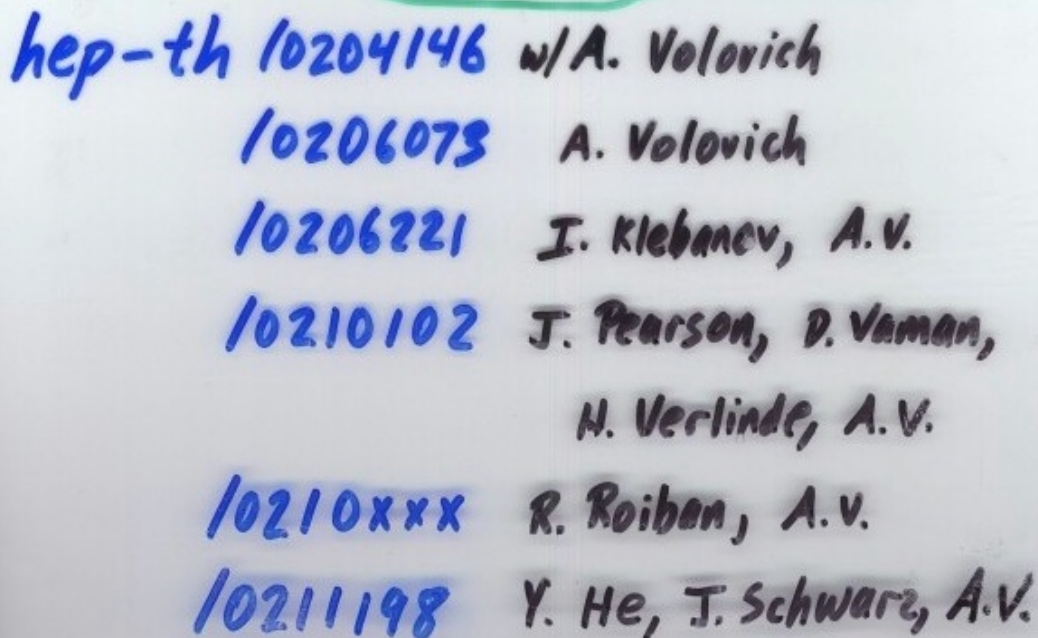 hep-th /0204146 w/A. Volovich
/0206073 A. Volovich
/0206221 I. Klebanov, A.V.
/0210102 J. Pearson, D. Vaman,
H. Verlinde, A.V.
/0210xxx R. Roiban, A.V.
/0211198 Y. He, J. Schwarz, A.V.